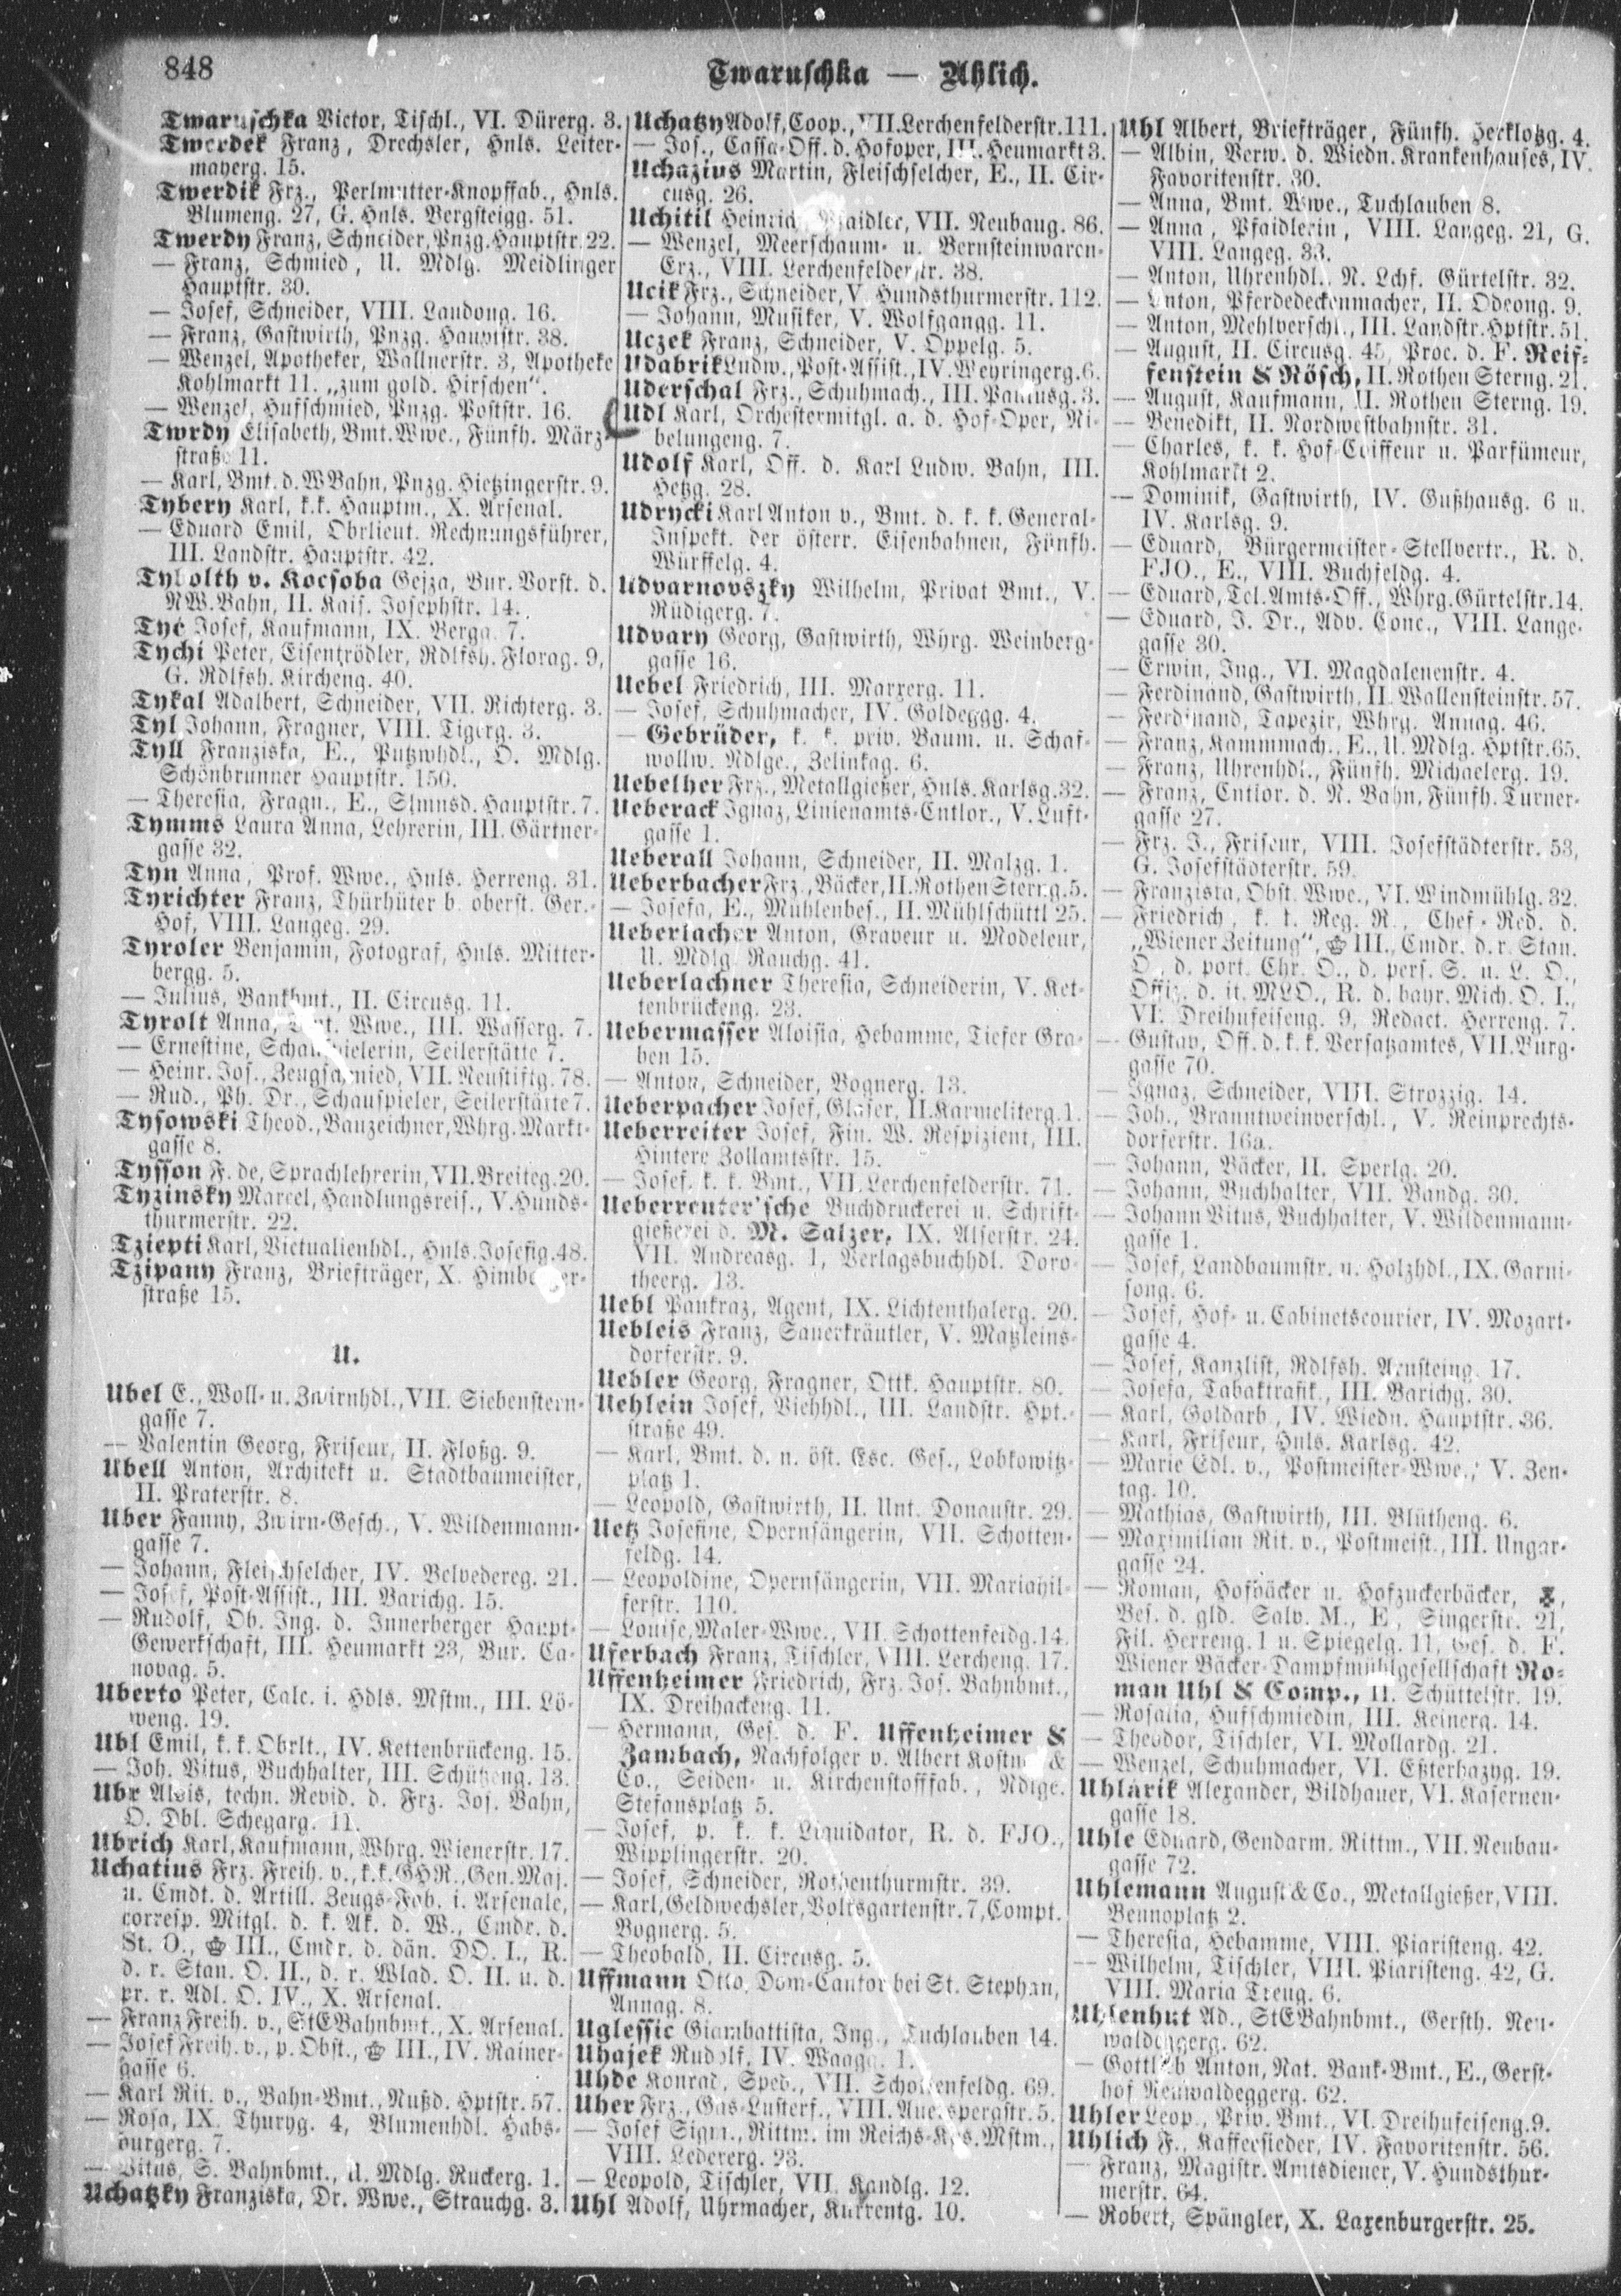 848
Twaruschka — Uhlich.
Twaruschka Victor, Tischl., VI. Dürerg. 3.
Twerdek Franz, Drechsler, Hnls. Leiter-
mayerg. 15.
Twerdik Frz., Perlmutter-Knopffab., Hnls.
Blumeng. 27, G. Hnls. Bergsteigg. 51.
Twerdy Franz, Schneider, Pnzg. Hauptstr. 22.
— Franz, Schmied, U. Mdlg. Meidlinger
Hauptstr. 30.
— Josef, Schneider, VIII. Laudong. 16.
— Franz, Gastwirth, Pnzg. Hauptstr. 38.
— Wenzel, Apotheker, Wallnerstr. 3, Apotheke
Kohlmarkt 11. „zum gold. Hirschen“.
— Wenzel, Hufschmied, Pnzg. Poststr. 16.
Twrdy Elisabeth, Bmt. Wwe., Fünfh. März-
straße 11.
— Karl, Bmt. d. WBahn, Pnzg. Hietzingerstr. 9.
Tybery Karl, k.k. Hauptm., X. Arsenal.
— Eduard Emil, Obrlieut. Rechnungsführer,
III. Landstr. Hauptstr. 42.
Tybolth v. Kocsoba Gejza, Bur. Vorst. d.
NW. Bahn, II. Kais. Josephstr. 14.
Tyć Josef, Kaufmann, IX. Berga. 7.
Tychi Peter, Eisentrödler, Rdlfsh. Florag. 9,
G. Rdlfsh. Kircheng. 40.
Tykal Adalbert, Schneider, VII. Richterg. 3.
Tyl Johann, Fragner, VIII. Tigerg. 3.
Tyll Franziska, E., Putzwhdl., O. Mdlg.
Schönbrunner Hauptstr. 150.
— Theresia, Fragn., E., Slmnsd. Hauptstr. 7.
Tymms Laura Anna, Lehrerin, III. Gärtner-
gasse 32.
Tyn Anna, Prof. Wwe., Hnls. Herreng. 31.
Tyrichter Franz, Thürhüter b. oberst. Ger.-
Hof, VIII. Langeg. 29.
Tyroler Benjamin, Fotograf, Hnls. Mitter-
bergg. 5.
— Julius, Bankbmt., II. Circusg. 11.
Tyrolt Anna, Bmt. Wwe., III. Wasserg. 7.
— Ernestine, Schauspielerin, Seilerstätte 7.
— Heinr. Jos., Zeugschmied, VII. Neustiftg. 78.
— Rud., Ph. Dr., Schauspieler, Seilerstätte 7.
Tysowski Theod., Bauzeichner, Whrg. Markt-
gasse 8.
Tysson F. de, Sprachlehrerin, VII. Breiteg. 20.
Tyzinsky Marcel, Handlungsreis., V. Hunds-
thurmerstr. 22.
Tziepti Karl, Victualienhdl., Hnls. Josefig. 48.
Tzipany Franz, Briefträger, X. Himberger-
straße 15.
U.
Ubel E., Woll- u. Zwirnhdl., VII. Siebenstern-
gasse 7.
— Valentin Georg, Friseur, II. Floßg. 9.
Ubell Anton, Architekt u. Stadtbaumeister,
II. Praterstr. 8.
Uber Fanny, Zwirn-Gesch., V. Wildenmann-
gasse 7.
— Johann, Fleischselcher, IV. Belvedereg. 21.
— Josef, Post-Assist., III. Barichg. 15.
— Rudolf, Ob. Ing. d. Innerberger Haupt-
Gewerkschaft, III. Heumarkt 23, Bur. Ca-
novag. 5.
Uberto Peter, Calc. i. Hdls. Mstm., III. Lö-
weng. 19.
Ubl Emil, k.k. Obrlt., IV. Kettenbrückeng. 15.
— Joh. Vitus, Buchhalter, III. Schützeng. 13.
Ubr Alois, techn. Revid. d. Frz. Jos. Bahn,
O. Dbl. Schegarg. 11.
Ubrich Karl, Kaufmann, Whrg. Wienerstr. 17.
Uchatius Frz. Freih. v., k.k. GHR., Gen. Maj.
u. Cmdt. d. Artill. Zeugs-Fab. i. Arsenale,
corresp. Mitgl. d. k. Ak. d. W., Cmdr. d.
St. O., III., Cmdr. d. dän. DO. I., R.
d. r. Stan. O. II., d. r. Wlad. O. II. u. d.
pr. r. Adl. O. IV., X. Arsenal.
— Franz Freih. v., StEBahnbmt., X. Arsenal.
— Josef Freih. v., p. Obst., III., IV. Rainer-
gasse 6.
— Karl Rit. v., Bahn-Bmt., Nußd. Hptstr. 57.
— Rosa, IX. Thuryg. 4, Blumenhdl. Habs-
burgerg. 7.
— Vitus, S. Bahnbmt., U. Mdlg. Ruckerg. 1.
Uchatzky Franziska, Dr. Wwe., Strauchg. 3.
Uchatzy Adolf, Coop., VII. Lerchenfelderstr. 111.
— Jos., Cassa-Off. d. Hofoper, III. Heumarkt 3.
Uchazius Martin, Fleischselcher, E., II. Cir-
cusg. 26.
Uchitil Heinrich, Pfaidler, VII. Neubaug. 86.
— Wenzel, Meerschaum- u. Bernsteinwaren-
Erz., VIII. Lerchenfelderstr. 38.
Ucik Frz., Schneider, V. Hundsthurmerstr. 112.
— Johann, Musiker, V. Wolfgangg. 11.
Uczek Franz, Schneider, V. Oppelg. 5.
Udabrik Ludw., Post-Assist., IV. Weyringerg. 6.
Uderschal Frz., Schuhmach., III. Paulusg. 3.
Udl Karl, Orchestermitgl. a. d. Hof-Oper, Ni-
belungeng. 7.
Udolf Karl, Off. d. Karl Ludw. Bahn, III.
Hetzg. 28.
Udrycki Karl Anton v., Bmt. d. k. k. General-
Inspekt. der österr. Eisenbahnen, Fünfh.
Würffelg. 4.
Udvarnovszky Wilhelm, Privat Bmt., V.
Rüdigerg. 7.
Udvary Georg, Gastwirth, Whrg. Weinberg-
gasse 16.
Uebel Friedrich, III. Marxerg. 11.
— Josef, Schuhmacher, IV. Goldeggg. 4.
— Gebrüder, k. k. priv. Baum. u. Schaf-
wollw. Ndlge., Zelinkag. 6.
Uebelher Frz., Metallgießer, Hnls. Karlsg. 32.
Ueberack Ignaz, Linienamts-Cntlor., V. Luft-
gasse 1.
Ueberall Johann, Schneider, II. Malzg. 1.
Ueberbacher Frz., Bäcker, II. Rothen Sterng. 5.
— Josefa, E., Mühlenbes., II. Mühlschüttl 25.
Ueberlacher Anton, Graveur u. Modeleur,
U. Mdlg. Rauchg. 41.
Ueberlachner Theresia, Schneiderin, V. Ket-
tenbrückeng. 23.
Uebermasser Aloisia, Hebamme, Tiefer Gra-
ben 15.
— Anton, Schneider, Bognerg. 13.
Ueberpacher Josef, Glaser, II. Karmeliterg. 1.
Ueberreiter Josef, Fin. W. Respizient, III.
Hintere Zollamtsstr. 15.
— Josef. k. k. Bmt., VII. Lerchenfelderstr. 71.
Ueberreuter'sche Buchdruckerei u. Schrift-
gießerei d. M. Salzer, IX. Alserstr. 24.
VII. Andreasg. 1, Verlagsbuchhdl. Doro-
theerg. 13.
Uebl Pankraz, Agent, IX. Lichtenthalerg. 20.
Uebleis Franz, Sauerkräutler, V. Matzleins-
dorferstr. 9.
Uebler Georg, Fragner, Ottk. Hauptstr. 80.
Uehlein Josef, Viehhdl., III. Landstr. Hpt.-
straße 49.
— Karl, Bmt. d. n. öst. Esc. Ges., Lobkowitz-
platz 1.
— Leopold, Gastwirth, II. Unt. Donaustr. 29.
Uetz Josefine, Opernsängerin, VII. Schotten-
feldg. 14.
— Leopoldine, Opernsängerin, VII. Mariahil-
ferstr. 110.
— Louise, Maler-Wwe., VII. Schottenfeldg. 14.
Uferbach Franz, Tischler, VIII. Lercheng. 17.
Uffenheimer Friedrich, Frz. Jos. Bahnbmt.,
IX. Dreihackeng. 11.
— Hermann, Ges. d. F. Uffenheimer &
Zambach, Nachfolger v. Albert &
Co., Seiden- u. Kirchenstofffab., Ndlge.
Stefansplatz 5.
— Josef, p. k. k. Liquidator, R. d. FJO.,
Wipplingerstr. 20.
— Josef, Schneider, Rothenthurmstr. 39.
— Karl, Geldwechsler, Volksgartenstr. 7, Compt.
Bognerg. 5.
— Theobald, II. Circusg. 5.
Uffmann Otto, Dom-Cantor bei St. Stephan,
Annag. 8.
Uglessic Giambattista, Ing., Tuchlauben 14.
Uhajek Rudolf, IV. Waagg. 1.
Uhde Konrad, Sped., VII. Schottenfeldg. 69.
Uher Frz., Gas-Lusterf., VIII. Auerspergstr. 5.
— Josef Sigm., Rittm. im Reichs-Kgs. Mstm.,
VIII. Ledererg. 23.
— Leopold, Tischler, VII. Kandlg. 12.
Uhl Adolf, Uhrmacher, Kurrentg. 10.
Uhl Albert, Briefträger, Fünfh. Herklotzg. 4.
— Albin, Verw. d. Wiedn. Krankenhauses, IV.
Favoritenstr. 30.
— Anna, Bmt. Wwe., Tuchlauben 8.
— Anna, Pfaidlerin, VIII. Langeg. 21, G.
VIII. Langeg. 33.
— Anton, Uhrenhdl., N. Lchf. Gürtelstr. 32.
— Anton, Pferdedeckenmacher, II. Odeong. 9.
— Anton, Mehlverschl., III. Landstr. Hptstr. 51.
— August, II. Circusg. 45, Proc. d. F. Reif-
fenstein & Rösch, II. Rothen Sterng. 21.
— August, Kaufmann, II. Rothen Sterng. 19.
— Benedikt, II. Nordwestbahnstr. 31.
— Charles, k. k. Hof-Coiffeur u. Parfümeur,
Kohlmarkt 2.
— Dominik, Gastwirth, IV. Gußhausg. 6 u.
IV. Karlsg. 9.
— Eduard, Bürgermeister-Stellvertr., R. d.
FJO., E., VIII. Buchfeldg. 4.
— Eduard, Tel. Amts-Off., Whrg. Gürtelstr. 14.
— Eduard, J. Dr., Adv. Conc., VIII. Lange-
gasse 30.
— Erwin, Ing., VI. Magdalenenstr. 4.
— Ferdinand, Gastwirth, II. Wallensteinstr. 57.
— Ferdinand, Tapezir, Whrg. Annag. 46.
— Franz, Kammmach., E., U. Mdlg. Hptstr. 65.
— Franz, Uhrenhdl., Fünfh. Michaelerg. 19.
— Franz, Cntlor. d. N. Bahn, Fünfh. Turner-
gasse 27.
— Frz. J., Friseur, VIII. Josefstädterstr. 53,
G. Josefstädterstr. 59.
— Franziska, Obst. Wwe., VI. Windmühlg. 32.
— Friedrich, k. k. Reg. R., Chef-Red. d.
„Wiener Zeitung“, III., Cmdr. d. r. Stan.
O., d. port. Chr. O., d. pers. S. u. L. O.,
Offiz. d. it. MLO., R. d. bayr. Mich. O. I.,
VI. Dreihufeiseng. 9, Redact. Herreng. 7.
— Gustav, Off. d. k. k. Versatzamtes, VII. Burg-
gasse 70.
— Ignaz, Schneider, VIII. Strozzig. 14.
— Joh., Branntweinverschl., V. Reinprechts-
dorferstr. 16a.
— Johann, Bäcker, II. Sperlg. 20.
— Johann, Buchhalter, VII. Bandg. 30.
— Johann Vitus, Buchhalter, V. Wildenmann-
gasse 1.
— Josef, Landbaumstr. u. Holzhdl., IX. Garni-
song. 6.
— Josef, Hof- u. Cabinetscourier, IV. Mozart-
gasse 4.
— Josef, Kanzlist, Rdlfsh. Arnsteing. 17.
— Josefa, Tabaktrafik, III. Barichg. 30.
— Karl, Goldarb., IV. Wiedn. Hauptstr. 36.
— Karl, Friseur, Hnls. Karlsg. 42.
— Marie Edl. v., Postmeister-Wwe., V. Zen-
tag. 10.
— Mathias, Gastwirth, III. Blütheng. 6.
— Maximilian Rit. v., Postmeist., III. Ungar-
gasse 24.
— Roman, Hofbäcker u. Hofzuckerbäcker,
Bes. d. gld. Salv. M., E., Singerstr. 21,
Fil. Herreng. 1 u. Spiegelg. 11, Ges. d. F.
Wiener Bäcker-Dampfmühlgesellschaft Ro-
man Uhl & Comp., II. Schüttelstr. 19.
— Rosalia, Hufschmiedin, III. Keinerg. 14.
— Theodor, Tischler, VI. Mollardg. 21.
— Wenzel, Schuhmacher, VI. Eßterhazyg. 19.
Uhlarik Alexander, Bildhauer, VI. Kasernen-
gasse 18.
Uhle Eduard, Gendarm. Rittm., VII. Neubau-
gasse 72.
Uhlemann August & Co., Metallgießer, VIII.
Bennoplatz 2.
— Theresia, Hebamme, VIII. Piaristeng. 42.
— Wilhelm, Tischler, VIII. Piaristeng. 42, G.
VIII. Maria Treug. 6.
Uhlenhut Ad., StEBahnbmt., Gersth. Neu-
waldeggerg. 62.
— Gottlieb Anton, Nat. Bank-Bmt., E., Gerst-
hof Neuwaldeggerg. 62.
Uhler Leop., Priv. Bmt., VI. Dreihufeiseng. 9.
Uhlich F., Kaffeesieder, IV. Favoritenstr. 56.
— Franz, Magistr. Amtsdiener, V. Hundsthur-
merstr. 64.
— Robert, Spängler, X. Laxenburgerstr. 25.